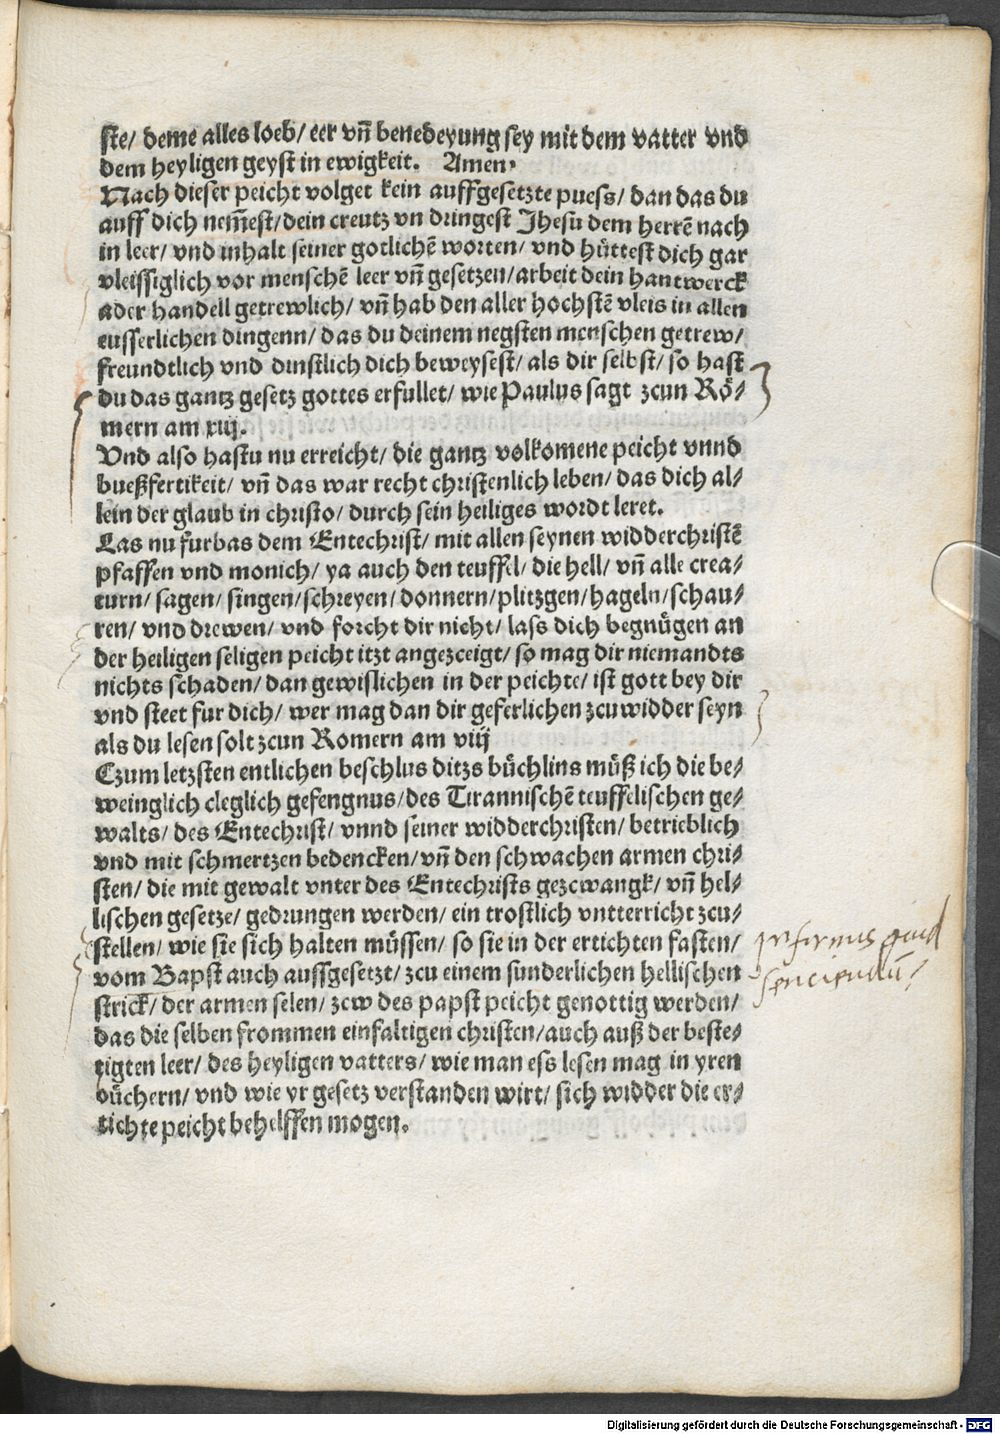 ste/ deme alles loeb/ eer vn̄ benedeyung sey mit dem vatter vnd
dem heyligen geyst in ewigkeit. Amen.
Nach dieser peicht volget kein auffgesetzte puess/ dan das du
auff dich nem̄est/ dein creutz vn dringest Jhesu dem herrē nach
in leer/ vnd inhalt seiner gotlichē worten/ vnd hüttest dich gar
vleissiglich vor menschē leer vn̄ gesetzen/ arbeit dein hantwerck
ader handell getrewlich/ vn̄ hab den aller hochstē vleis in allen
eusserlichen dingenn/ das du deinem negsten menschen getrew/
freundtlich vnd dinstlich dich beweysest/ als dir selbst/ so hast
du das gantz gesetz gottes erfullet/ wie Paulus sagt zcun Rö⸗
mern am xiij.
Vnd also hastu nu erreicht/ die gantz volkomene peicht vnnd
bueßfertikeit/ vn̄ das war recht christenlich leben/ das dich al⸗
lein der glaub in christo/ durch sein heiliges wordt leret.
Las nu furbas dem Entechrist/ mit allen seynen widderchristē
pfaffen vnd monich/ ya auch den teuffel/ die hell/ vn̄ alle crea⸗
turn/ sagen/ singen/ schreyen/ donnern/ plitzgen/ hageln/ schau⸗
ren/ vnd drewen/ vnd forcht dir nicht/ lass dich begnügen an
der heiligen seligen peicht itzt angezceigt/ so mag dir niemandts
nichts schaden/ dan gewislichen in der peichte/ ist gott bey dir
vnd steet fur dich/ wer mag dan dir geferlichen zcuwidder seyn
als du lesen solt zcun Romern am viij
Czum letzsten entlichen beschlus ditzs büchlins müß ich die be⸗
weinglich cleglich gefengnus/ des Tirannischē teuffelischen ge⸗
walts/ des Entechrist/ vnnd seiner widderchristen/ betrieblich
vnd mit schmertzen bedencken/ vn̄ den schwachen armen chri⸗
sten/ die mit gewalt vnter des Entechrists gezcwangk/ vn̄ hel⸗
lischen gesetze/ gedrungen werden/ ein trostlich vntterricht zcu⸗
stellen/ wie sie sich halten müssen/ so sie in der ertichten fasten/
vom Bapst auch auffgesetzt/ zcu einem sunderlichen hellischen
strick/ der armen selen/ zcw des papst peicht genottig werden/
das die selben frommen einfaltigen christen/ auch auß der beste⸗
tigten leer/ des heyligen vatters/ wie man ess lesen mag in yren
büchern/ vnd wie yr gesetz verstanden wirt/ sich widder die er⸗
tichte peicht behelffen mogen.
quid
senciendū
Digitalisierung gefördert durch die Deutsche Forschungsgemeinschaft - DFG